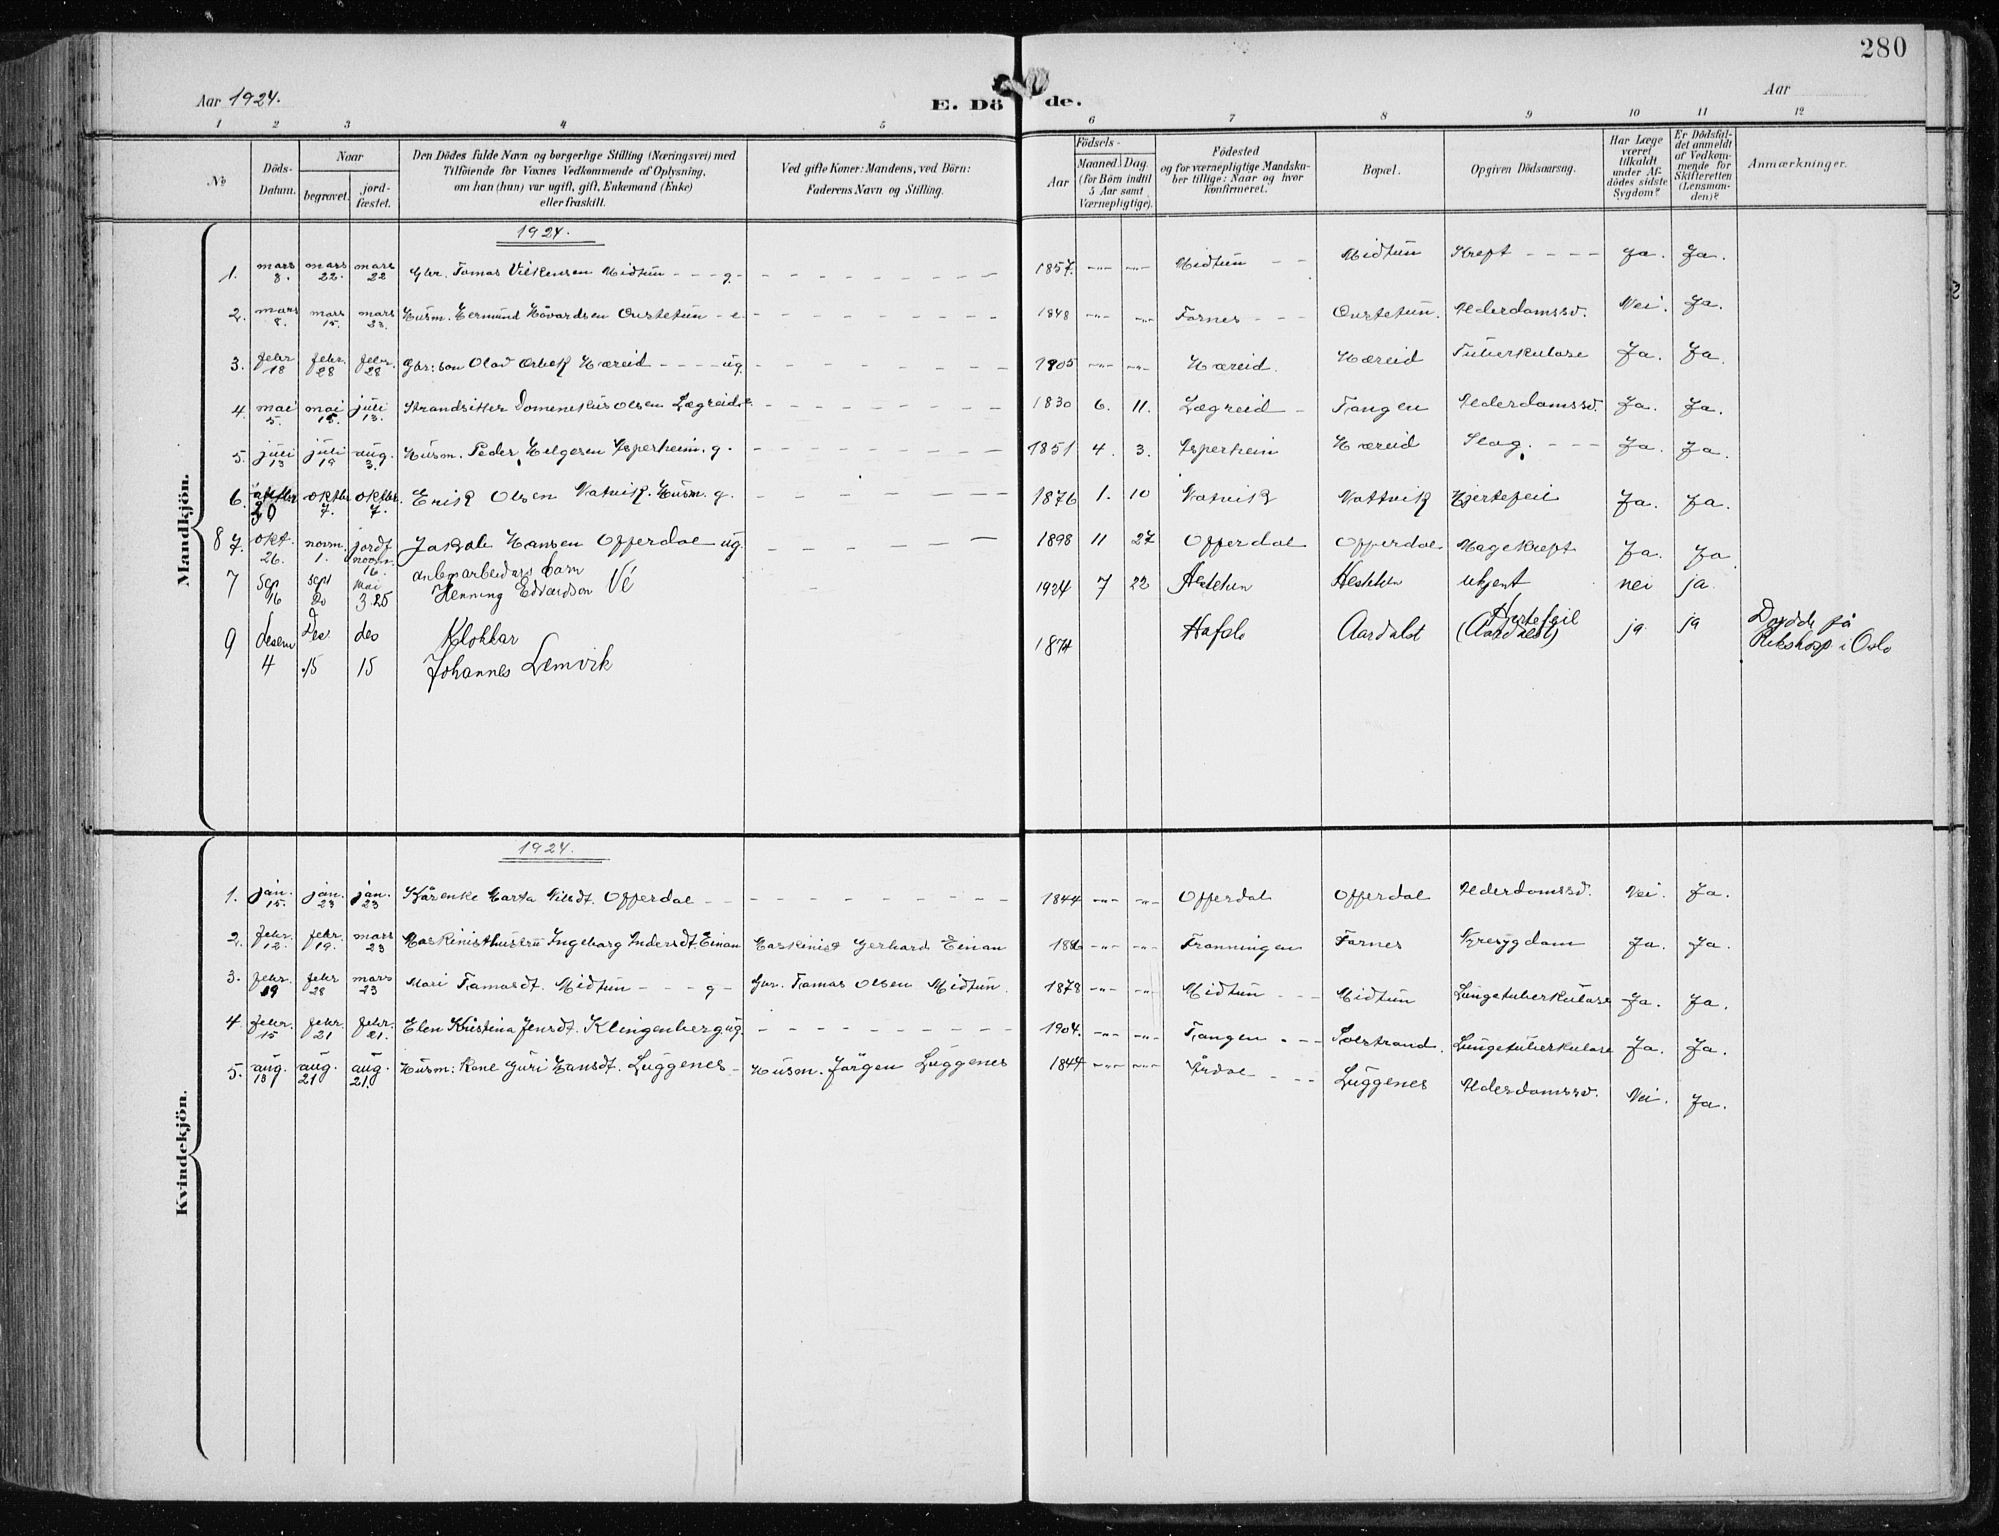 280
Aar 1924.
E. Döde.
Aar
1 2 3 4 5 6 7 8 9 10 11 12
No
Döds-Datum.
Naar
begravet.
jordfæstet.
Den Dödes fulde Navn og borgerlige Stilling (Næringsvei) med Tilföiende for Voxnes Vedkommende af Oplysning, om han (hun) var ugift, gift, Enkemand (Enke) eller fraskilt.
Ved gifte Koner: Mandens, ved Börn: Faderens Navn og Stilling.
Födsels-
Aar
Maaned Dag. (for Börn indtil 5 Aar samt Værnepligtige).
Födested og for værnepligtige Mandskaber tillige: Naar og hvor konfirmeret.
Bopæl.
Opgiven Dödsaarsag.
Har Læge været tilkaldt under Afdödes sidste Sygdom?
Er Dödsfaldet anmeldt af Vedkommende for Skifteretten (Lensmanden)?
Anmærkninger.
Mandkjön.
1924.
1. mars 8. mars 22. mars 22 Gbr. Tomas Vilkensen Midtun - - - g. 1857. Midtun Midtun Kreft Ja. Ja.
2. mars 8. mars 15. mars 23. Husm. Hermund Hövardsen Oustetun - e. 1848 Fornes Oustetun. Alderdomssv. Nei. Ja.
3. febr. 18 febr. 28 febr. 28 Gbr: son Olav Orbek Hæreid - - - - ug. 1905 Hæreid. Hæreid Tuberkulose Ja. Ja.
4. mai 5. mai 15. juli 13. Strandsitter Domenikus Olsen Lægreid e. 1830 6. 11. Lægreid Tangen Alderdomssv. Ja. Ja.
5. juli 13 juli 19 aug. 3. Husm. Peder Helgesen Asperheim. g. 1851 4. 3. Asperheim Hæreid Slag. Ja. Ja.
6. oktbr. 7. oktbr. 7. Erik Olsen Natvik. Husm. g. 1876 1. 10 Natvik Nattvik Hjertefeil Ja. Ja.
8 7. okt. 26. novm. 1. jordf novm. 16 Jakob Hansen Offerdal ug. 1898 11 27 Offerdal Offerdal Magekreft Ja. Ja
7 Sep 16 sept 20 Mai 3 25 anlegsarbeidars barn Henning Edvardson Vé 1924 7 22 ukjent nei ja.
9 desem 4 Des 15 des 15 Klokkar Johannes Lemvik 1874 Hafslo Aardalst Hjertefeil (Aardalst) ja ja Döydde på Rikshosp i Oslo
Kvindekjön.
1924.
1. jan. 15. jan. 23 jan. 23 Kårenke Marta Nilsdt. Offerdal 1844 Offerdal Offerdal Alderdomssv. Nei. Ja.
2. febr. 12. febr. 19. mars 23 Maskinisthustru Ingeborg Andersdt. Einan Maskinist Gerhard Einan Fornes Nyresygdom Ja. Ja.
3. febr. 19 febr. 28 mars 23 Mari Tomasdt. Midtun - - - g - Gbr. Tomas Olsen Midtun. 1878 Midtun Midtun Lungetuberkulose Ja. Ja.
4. febr. 15 febr. 21 febr. 21. Elen Kristina Jensdt. Klingenberg ug. 1904. Tangen Lungetuberkulose Ja. Ja.
5. aug. 13 aug. 21 aug. 21. Husm: kone Guri Hansdt. Luggenes - Husm. Jörgen Luggenes 1844 Årdal Luggenes Alderdomssv. Nei. Ja.